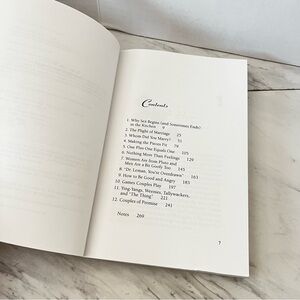 Contents
1. Why Sex Begins (and Sometimes Ends)
in the Kitchen 9
2. The Plight of Marriage 25
3. Whom Did You Marry? 51
4. Making the Pieces Fit 79
5. One Plus One Equals One 105
6. Nothing More Than Feelings 129
7. Women Are from Pluto and
Men Are a Bit Goofy Too 143
8. "Dr. Leman, You're Overdrawn" 163
9. How to Be Good and Angry 183
10. Games Couples Play 197
11. Ying-Yangs, Weenies, Tallywackers,
and "The Thing" 221
12. Couples of Promise 241
Notes 269
7